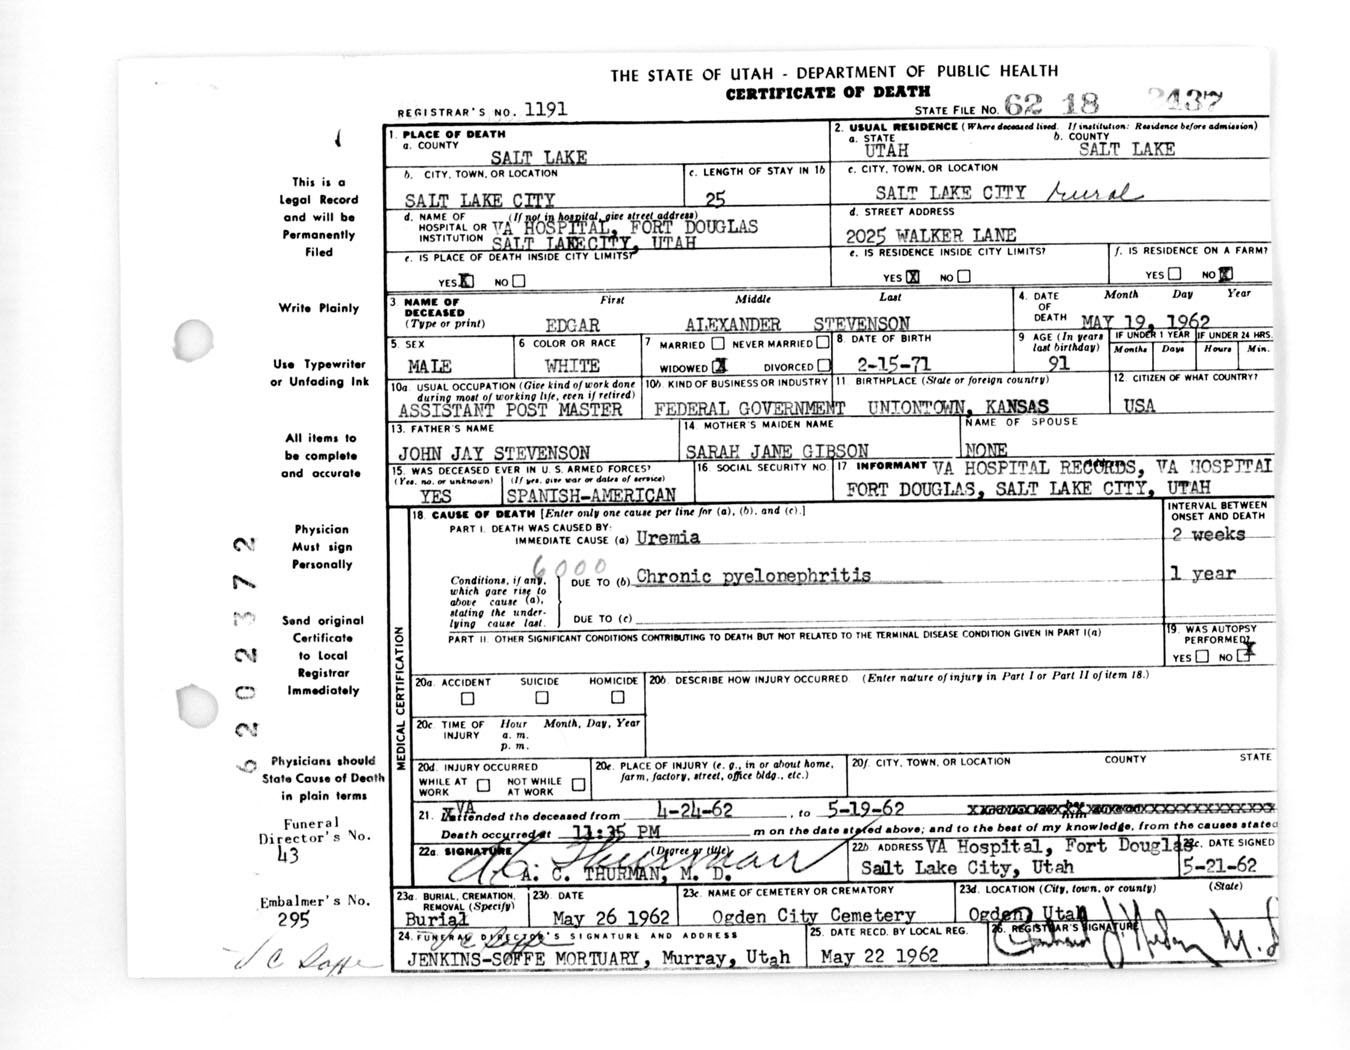 THE STATE OF UTAH - DEPARTMENT OF PUBLIC HEALTH
CERTIFICATE OF DEATH
REGISTRAR'S NO. 1191
STATE FILE NO. 62 18 2437
This is a
Legal Record
and will be
Permanently
Filed
Write Plainly
Use Typewriter
or Unfading Ink
All items to
be complete
and accurate
Physician
Must sign
Personally
Send original
Certificate
to Local
Registrar
Immediately
Physicians should
State Cause of Death
in plain terms
Funeral
Director's No.
43
Embalmer's No.
295
J C Soffe
6 2 0 2 3 7 2
1. PLACE OF DEATH
a. COUNTY
SALT LAKE
2. USUAL RESIDENCE (Where deceased lived. If institution: Residence before admission)
a. STATE b. COUNTY
UTAH SALT LAKE
b. CITY, TOWN, OR LOCATION
SALT LAKE CITY
c. LENGTH OF STAY IN 1b
25
c. CITY, TOWN, OR LOCATION
SALT LAKE CITY rural
d. NAME OF (If not in hospital, give street address)
HOSPITAL OR VA HOSPITAL, FORT DOUGLAS
INSTITUTION SALT LAKE CITY, UTAH
d. STREET ADDRESS
2025 WALKER LANE
e. IS PLACE OF DEATH INSIDE CITY LIMITS?
YES X NO
e. IS RESIDENCE INSIDE CITY LIMITS?
YES X NO
f. IS RESIDENCE ON A FARM?
YES NO X
3 NAME OF DECEASED
(Type or print)
First Middle Last
EDGAR ALEXANDER STEVENSON
4. DATE OF DEATH
Month Day Year
MAY 19, 1962
5. SEX
MALE
6 COLOR OR RACE
WHITE
7 MARRIED NEVER MARRIED
WIDOWED X DIVORCED
8 DATE OF BIRTH
2-15-71
9 AGE (In years last birthday)
91
IF UNDER 1 YEAR IF UNDER 24 HRS.
Months Days Hours Min.
10a. USUAL OCCUPATION (Give kind of work done
during most of working life, even if retired)
ASSISTANT POST MASTER
10b. KIND OF BUSINESS OR INDUSTRY
FEDERAL GOVERNMENT
11. BIRTHPLACE (State or foreign country)
UNIONTOWN, KANSAS
12. CITIZEN OF WHAT COUNTRY?
USA
13. FATHER'S NAME
JOHN JAY STEVENSON
14. MOTHER'S MAIDEN NAME
SARAH JANE GIBSON
NAME OF SPOUSE
NONE
15. WAS DECEASED EVER IN U. S. ARMED FORCES?
(Yes, no. or unknown) (If yes, give war or dates of service)
YES SPANISH-AMERICAN
16. SOCIAL SECURITY NO.
17 INFORMANT VA HOSPITAL RECORDS, VA HOSPITAL
FORT DOUGLAS, SALT LAKE CITY, UTAH
MEDICAL CERTIFICATION
18. CAUSE OF DEATH [Enter only one cause per line for (a), (b), and (c).]
INTERVAL BETWEEN
ONSET AND DEATH
PART I. DEATH WAS CAUSED BY:
IMMEDIATE CAUSE (a) Uremia 2 weeks
6000
Conditions, if any,
which gave rise to
above cause (a),
stating the under-
lying cause last.
DUE TO (b) Chronic pyelonephritis 1 year
DUE TO (c)
PART II. OTHER SIGNIFICANT CONDITIONS CONTRIBUTING TO DEATH BUT NOT RELATED TO THE TERMINAL DISEASE CONDITION GIVEN IN PART I(a)
19. WAS AUTOPSY
PERFORMED?
YES NO X
20a. ACCIDENT SUICIDE HOMICIDE
20b. DESCRIBE HOW INJURY OCCURRED. (Enter nature of injury in Part I or Part II of item 18.)
20c TIME OF INJURY
Hour Month, Day, Year
a. m.
p. m.
20d. INJURY OCCURRED
WHILE AT WORK NOT WHILE AT WORK
20e. PLACE OF INJURY (e. g., in or about home,
farm, factory, street, office bldg., etc.)
20f. CITY, TOWN, OR LOCATION COUNTY STATE
21. VA attended the deceased from 4-24-62, to 5-19-62
Death occurred at 11:35 PM m on the date stated above; and to the best of my knowledge, from the causes stated
22a. SIGNATURE (Degree or title)
A C Thurman
A. C. THURMAN, M. D.
22b. ADDRESS VA Hospital, Fort Douglas
Salt Lake City, Utah
22c. DATE SIGNED
5-21-62
23a. BURIAL, CREMATION,
REMOVAL (Specify)
Burial
23b. DATE
May 26 1962
23c. NAME OF CEMETERY OR CREMATORY
Ogden City Cemetery
23d. LOCATION (City, town, or county) (State)
Ogden, Utah
24. FUNERAL DIRECTOR'S SIGNATURE AND ADDRESS
J C Soffe
JENKINS-SOFFE MORTUARY, Murray, Utah
25. DATE RECD. BY LOCAL REG.
May 22 1962
26. REGISTRAR'S SIGNATURE